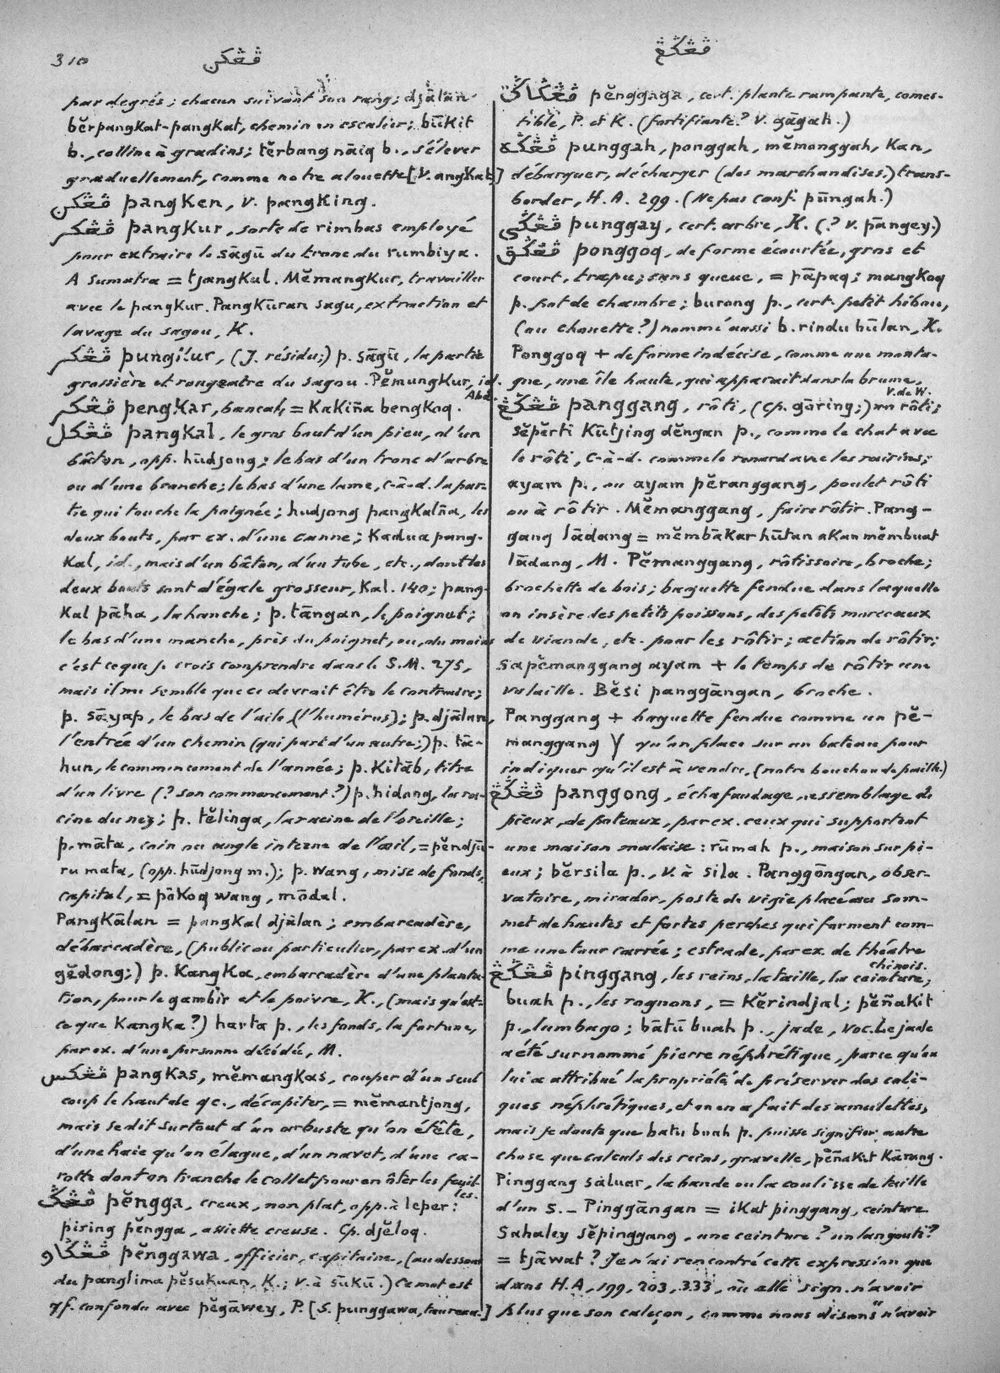 310
ڤڠكن
ڤڠكڠ
par degrés; chacun suivant son rang; djālan
bĕrpangkat-pangkat, chemin en escalier; būkit
b., colline à gradins; tĕrbang nāiq b., s'élever
graduellement, comme notre alouette [V. angkat]
ڤڠكن pangken, V. pangking.
ڤڠكر pangkur, sorte de rimbas employé
pour extraire le sāgū du tronc du rumbiya.
A Sumatra = tjangkul. Mĕmangkur, travailler
avec le pangkur. Pangkūran sagu, extraction et
lavage du sagou, K.
ڤڠكر pungkur, (J. résidu;) p. sāgū, la partie
grossière et rougeatre du sagou. Pĕmungkur, id.
Abd.
ڤڠكر pengkar, bancal, = Kakiña bengkoq.
ڤڠكل pangkal, le gros bout d'un pieu, d'un
bâton, opp. hūdjong; le bas d'un tronc d'arbre
ou d'une branche; le bas d'une lame, c-à-d. la par-
tie qui touche la poignée; hudjong pangkalña, les
deux bouts, par ex. d'une canne; Kadua pang-
kal, id., mais d'un bâton, d'un tube, etc., dont les
deux bouts sont d'égale grosseur, Kal. 140; pang-
kal pāha, la hanche; p. tāngan, le poignet;
le bas d'une manche, près du poignet, ou, du moins
c'est ce que je crois comprendre dans le S.M. 275,
mais il me semble que ce devrait être le contraire;
p. sāyap, le bas de l'aile (l'humérus); p. djālan,
l'entrée d'un chemin (qui part d'un autre;) p. tā-
hun, le commencement de l'année; p. Kitāb, titre
d'un livre (? son commencement?) p. hidong, la ra-
cine du nez; p. tĕlinga, la racine de l'oreille;
p. māta, coin ou angle interne de l'œil, = pĕndju-
ru mata, (opp. hūdjong m.); p. wang, mise de fonds,
capital, = pōkoq wang, mōdal.
Pangkālan = pangkal djālan; embarcadère,
débarcadère, (public ou particulier, par ex. d'un
gĕdong;) p. Kangka, embarcadère d'une planta-
tion, pour le gambir et le poivre, K., (mais qu'est-
ce que Kangka?) harta p., les fonds, la fortune,
par ex. d'une personne décédée, M.
ڤڠكس pangkas, mĕmangkas, couper d'un seul
coup le haut de qc., décapiter, = mĕmantjong,
mais se dit surtout d'un arbuste qu'on étête,
d'une haie qu'on élague, d'un navet, d'une ca-
rotte dont on tranche le collet pour en ôter les feuil-
les.
ڤڠݢ pĕngga, creux, non plat, opp. à leper:
piring pĕngga, assiette creuse. Cp. djĕloq.
ڤڠݢاو pĕnggawa, officier, capitaine, (au dessous
du panglima pĕsukuan, K.; V. à sūkū.) Ce mot est
qf. confondu avec pĕgāwey, P. [S. punggawa, taureau.]
pĕnggaga, cert. plante rampante, comes-
tible, P. et K. (fortifiante? V. gāgah.)
ڤڠݢه punggah, ponggah, mĕmonggah, Kan,
débarquer, décharger (des marchandises,) trans-
border, H.A. 299. (Ne pas conf. pūngah.)
ڤڠݢي punggay, cert. arbre, K. (? V. pāngey.)
ڤڠݢق ponggoq, de forme écourtée, gros et
court, trapu; sans queue, = pāpaq; mangkoq
p., pot de chambre; burong p., cert. petit hibou,
(ou chouette?) nommé aussi b. rindu būlan, K.
Ponggoq + de forme indécise, comme une monta-
gne, une île haute, qui apparait dans la brume,
V. de W.
ڤڠݢڠ panggang, rôti, (cp. gōring;) un rôti;
sĕpĕrti Kūtjing dĕngan p., comme le chat avec
le rôti, c-à-d. comme le renard avec les raisins;
ayam p., ou ayam pĕranggang, poulet rôti
ou à rôtir. Mĕmanggang, faire rôtir. Pang-
gang lādang = mĕmbākar hūtan akan mĕmbuat
lādang, M. Pĕmanggang, rôtissoire, broche;
brochette de bois; baguette fendue dans laquelle
on insère des petits poissons, des petits morceaux
de viande, etc. pour les rôtir; action de rôtir;
sapĕmanggang ayam + le temps de rôtir une
volaille. Bĕsi panggāngan, broche.
Panggang + baguette fendue comme un pĕ-
manggang Y qu'on place sur un bateau pour
indiquer qu'il est à vendre, (notre bouchon de paille)
ڤڠݢڠ panggong, échafaudage, assemblage de
pieux, de poteaux, par ex. ceux qui supportent
une maison malaise: rūmah p., maison sur pi-
eux; bĕrsila p., V. à sila. Panggōngan, obser-
vatoire, mirador, poste de vigie placé au som-
met de hautes et fortes perches qui forment com-
me une tour carrée; estrade, par ex. de théâtre
chinois.
ڤڠݢڠ pinggang, les reins, la taille, la ceinture;
buah p., les rognons, = Kĕrindjal; pĕñakit
p., lumbago; bātū buah p., jade, Voc. Le jade
a été surnommé pierre néphrétique, parce qu'on
lui a attribué la propriété de préserver des coli-
ques néphrétiques, et on en a fait des amulettes,
mais je doute que batu buah p. puisse signifier autre
chose que calculs des reins, gravelle, pĕñakit Kārang.
Pinggang sāluar, la bande ou la coulisse de taille
d'un S. _ Pinggāngan = ikat pinggang, ceinture
Sahaley sĕpinggang, une ceinture? un langouti?
= tjāwat? Je n'ai rencontré cette expression que
dans H.A. 199, 203, 333, où elle sign. n'avoir
plus que son caleçon, comme nous disons "n'avoir